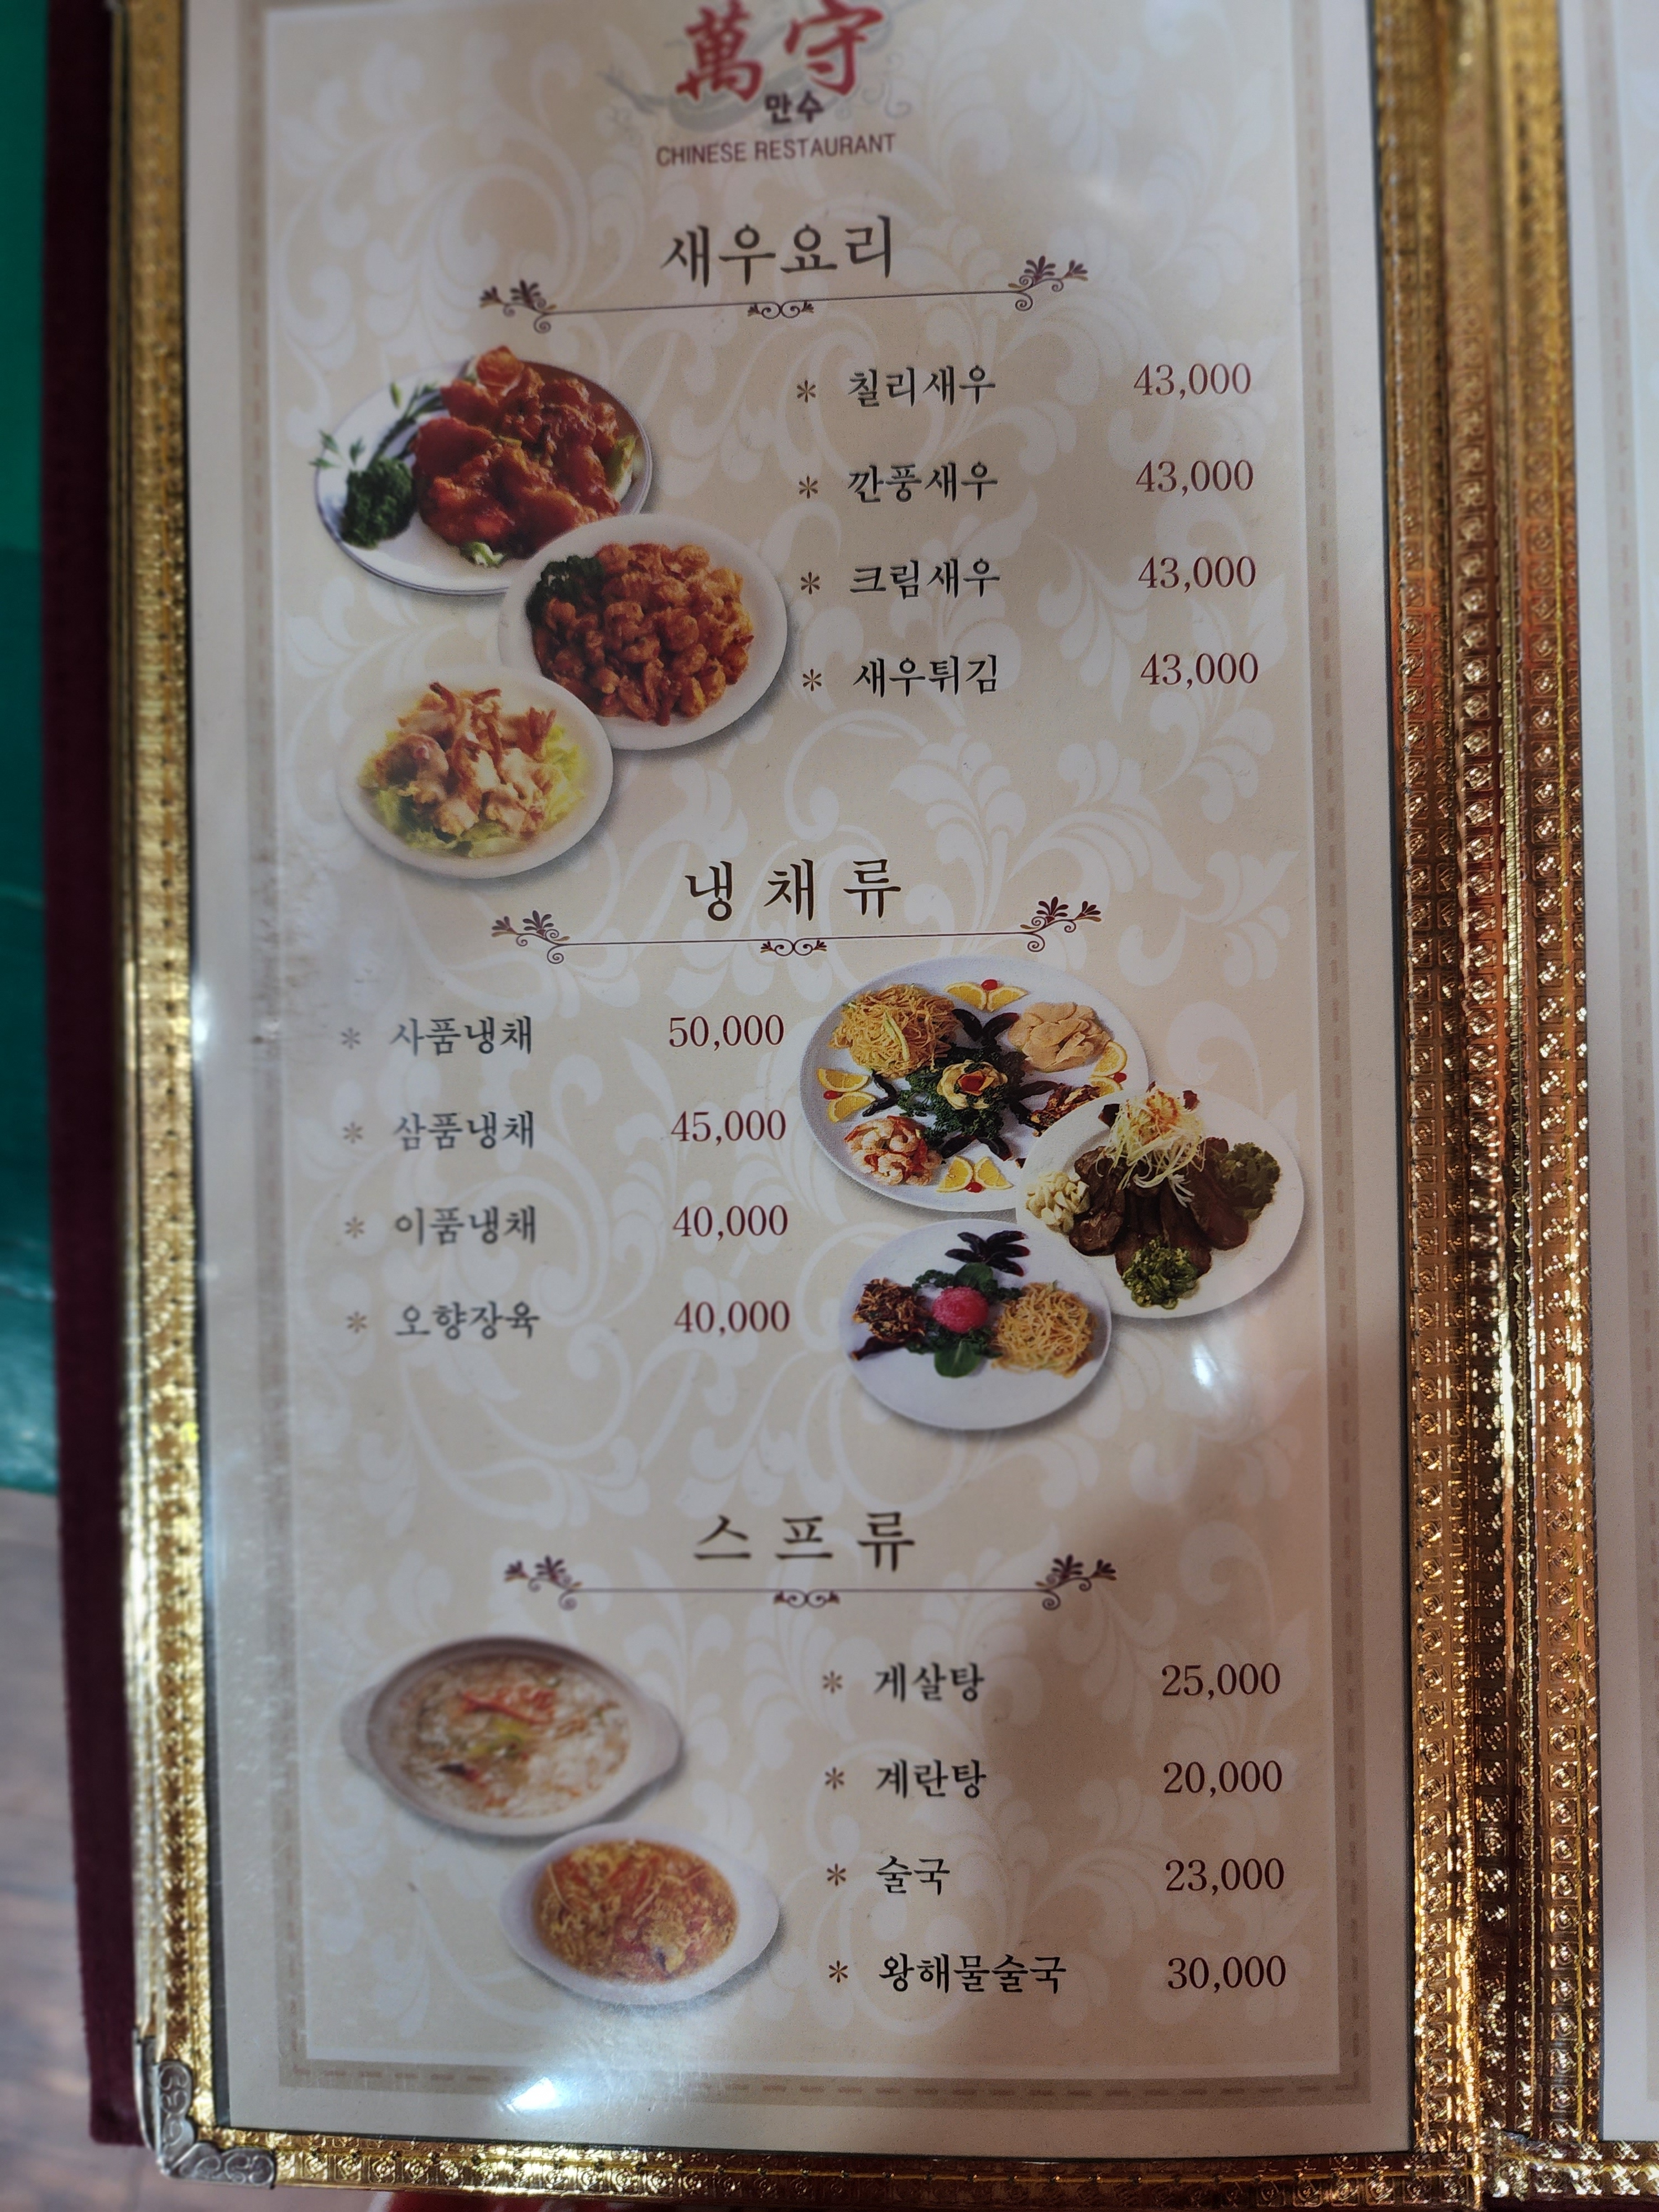 萬守
만수
CHINESE RESTAURANT
새우요리
* 칠리새우 43,000
* 깐풍새우 43,000
* 크림새우 43,000
* 새우튀김 43,000
냉채류
* 사품냉채 50,000
* 삼품냉채 45,000
* 이품냉채 40,000
* 오향장육 40,000
스프류
* 게살탕 25,000
* 계란탕 20,000
* 술국 23,000
* 왕해물술국 30,000